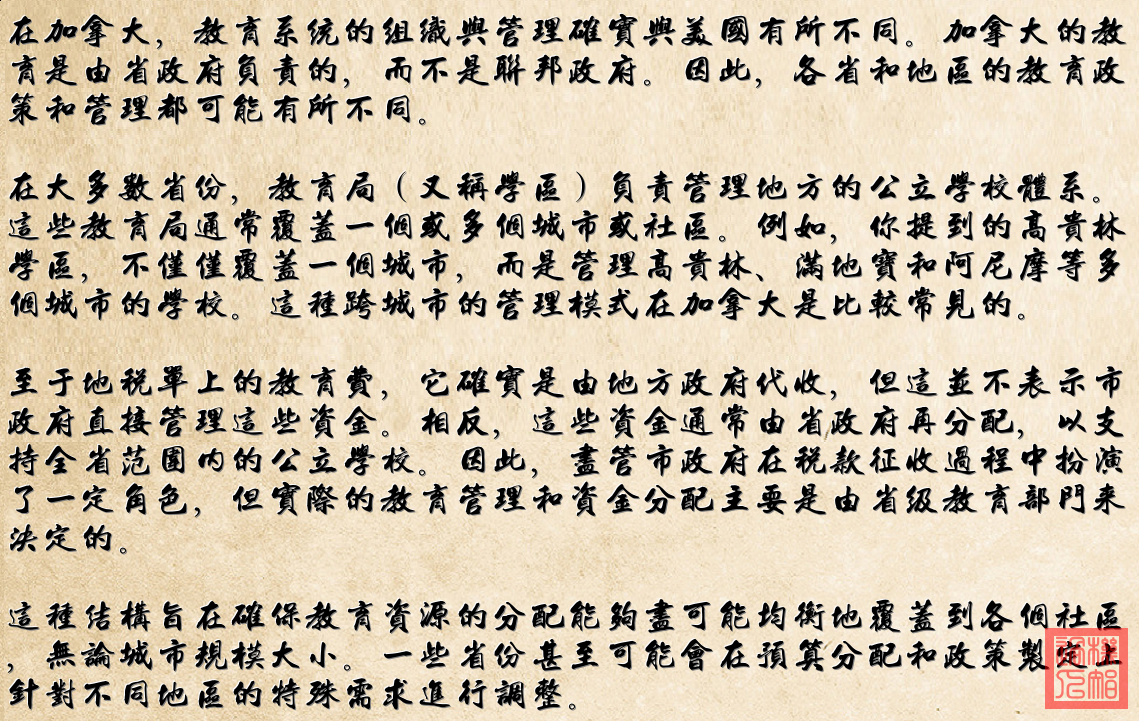 在加拿大，教育系统的組織與管理確實與美國有所不同。加拿大的教
育是由省政府負責的，而不是聯邦政府。因此，各省和地區的教育政
策和管理都可能有所不同。
在大多數省份，教育局（又稱學區）負責管理地方的公立學校體系。
這些教育局通常覆蓋一個或多個城市或社區。例如，你提到的高貴林
學區，不僅僅覆蓋一個城市，而是管理高貴林、滿地寶和阿尼摩等多
個城市的學校。這種跨城市的管理模式在加拿大是比較常見的。
至于地税單上的教育費，它確實是由地方政府代收，但這並不表示市
政府直接管理這些資金。相反，這些資金通常由省政府再分配，以支
持全省范围内的公立學校。因此，盡管市政府在税款征收過程中扮演
了一定角色，但實際的教育管理和資金分配主要是由省级教育部門来
決定的。
這種结構旨在確保教育資源的分配能夠盡可能均衡地覆蓋到各個社區
，無論城市規模大小。一些省份甚至可能會在預算分配和政策製定上
針對不同地區的特殊需求進行調整。